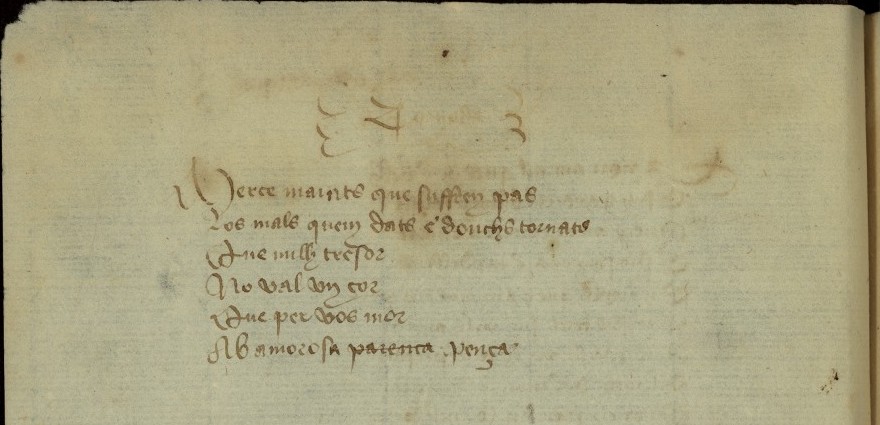 Merce maints que suffren pas
Los mals quem dats e douchs tornats
Que milh tresor
No val un cor
Que per vos mor
Ab amorosa parenca pença